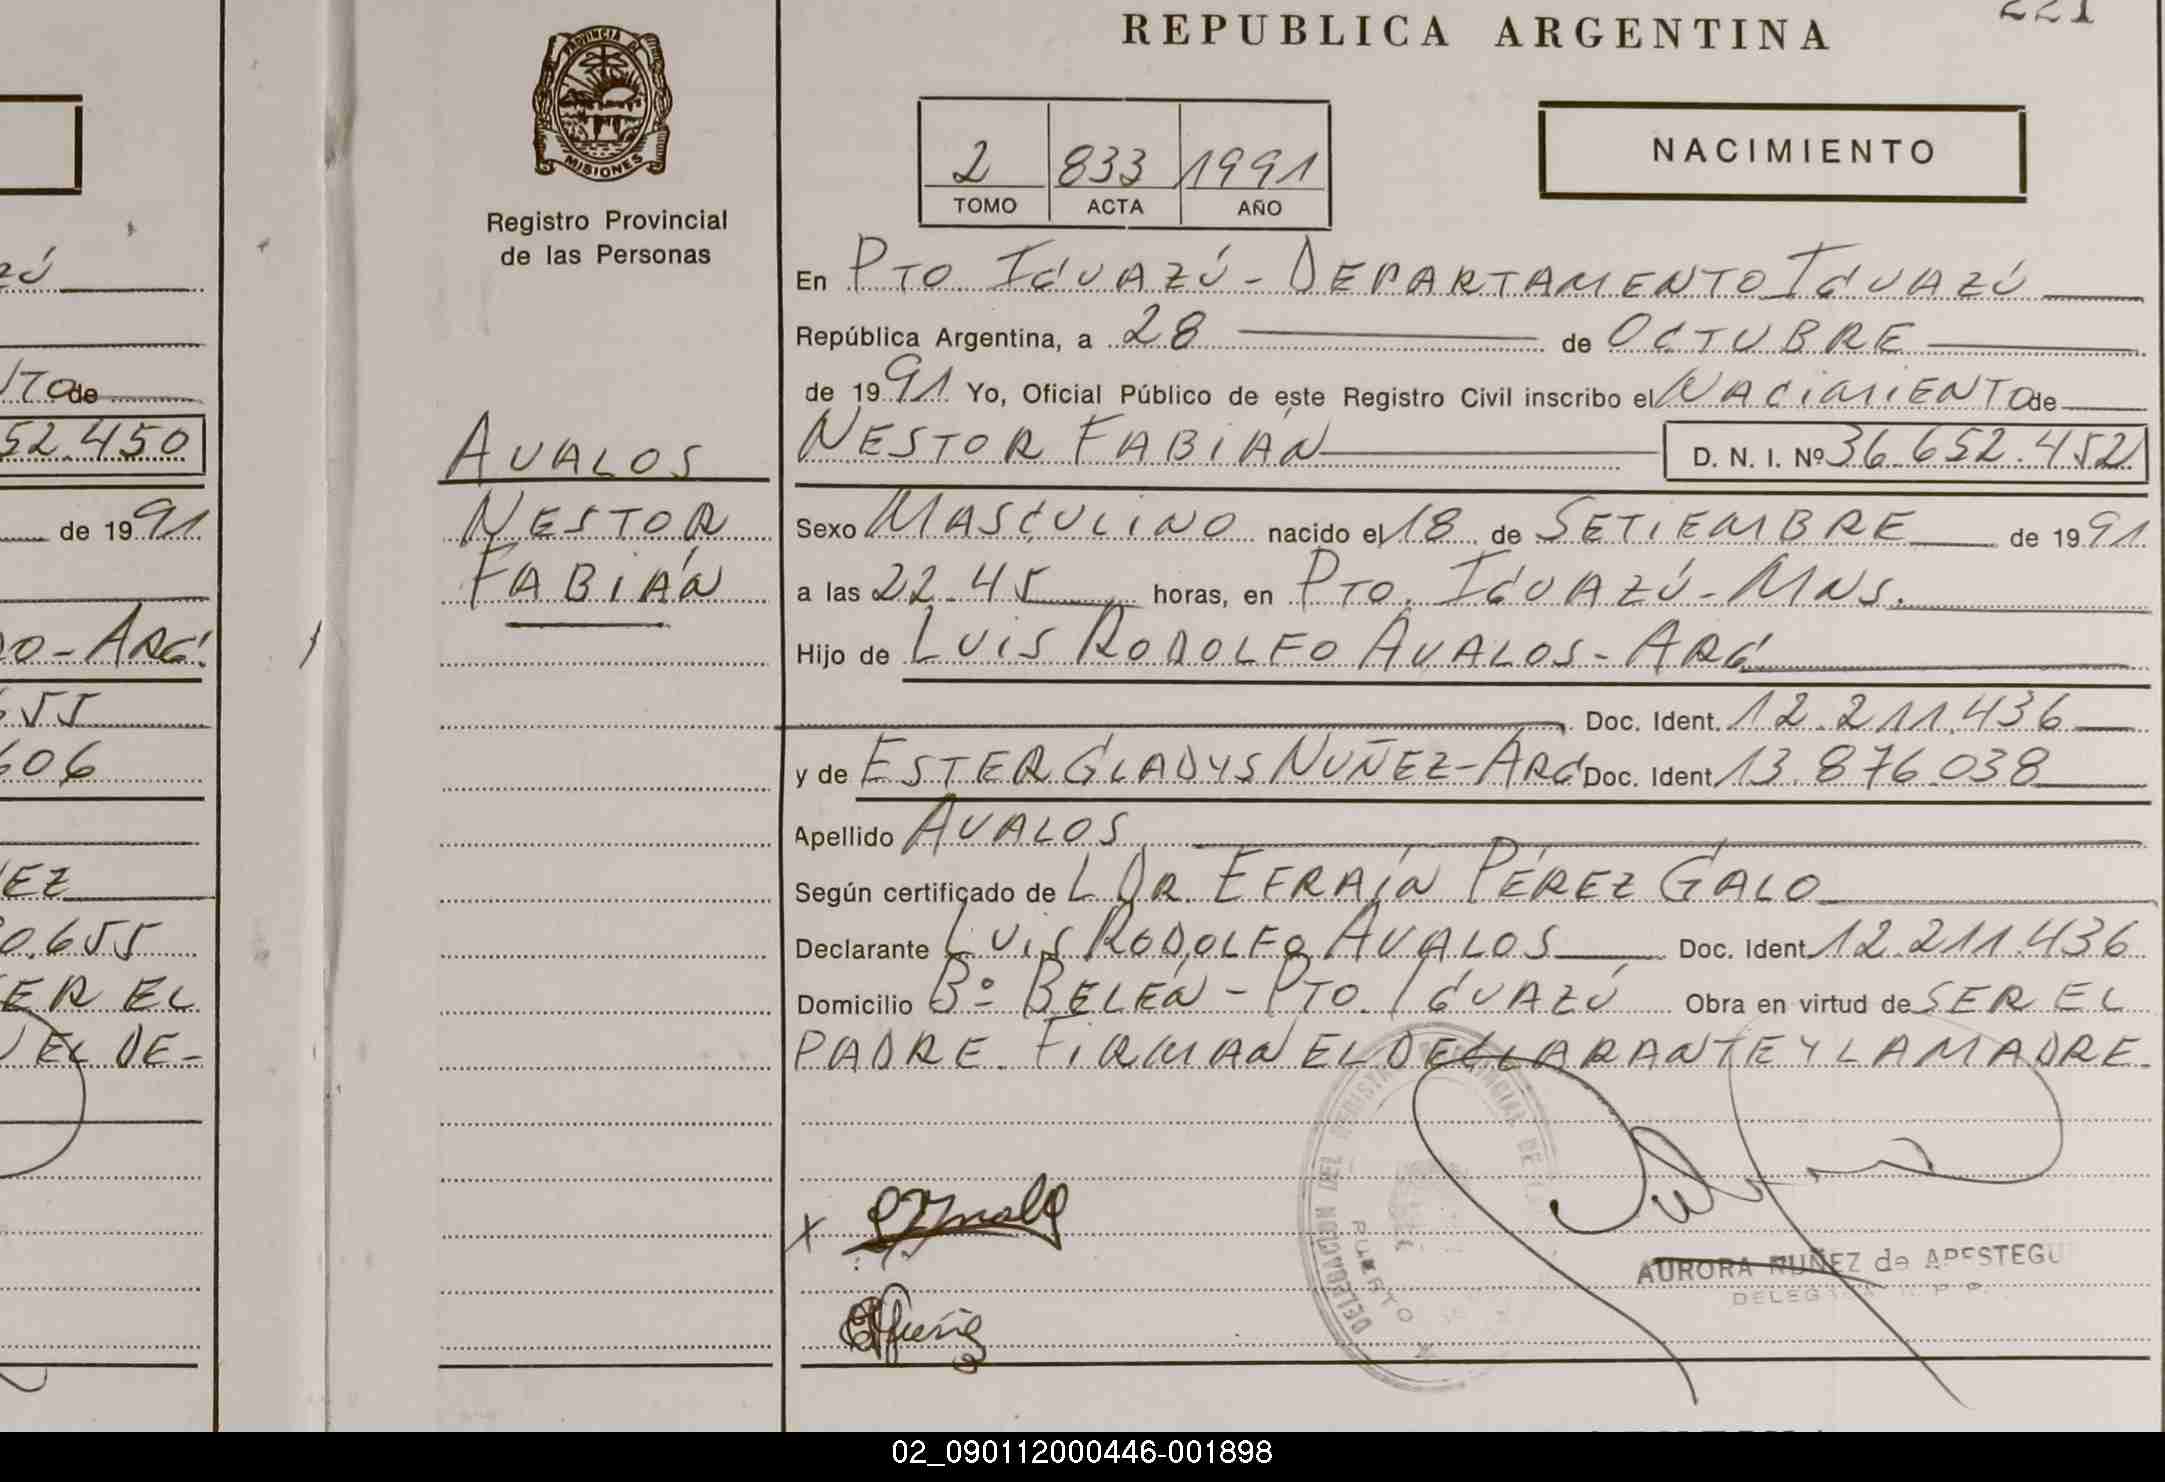 REPUBLICA ARGENTINA
221
PROVINCIA DE
MISIONES
Registro Provincial
de las Personas
2 833 1991
TOMO ACTA AÑO
NACIMIENTO
En PTO. IGUAZÚ - DEPARTAMENTO IGUAZÚ
República Argentina, a 28 de OCTUBRE
de 1991 Yo, Oficial Público de este Registro Civil inscribo el NACIMIENTO de
NESTOR FABIÁN D. N. I. Nº 36.652.452
AVALOS
NESTOR
FABIÁN
Sexo MASCULINO nacido el 18 de SETIEMBRE de 1991
a las 22.45 horas, en PTO. IGUAZÚ - MNS.
Hijo de LUIS RODOLFO AVALOS - ARG.
Doc. Ident. 12.211.436
y de ESTER GLADYS NUÑEZ - ARG. Doc. Ident. 13.876.038
Apellido AVALOS
Según certificado de L DR. EFRAÍN PÉREZ GALO
Declarante LUIS RODOLFO AVALOS Doc. Ident. 12.211.436
Domicilio Bº BELÉN - PTO. IGUAZÚ Obra en virtud de SER EL
PADRE. FIRMAN EL DECLARANTE Y LA MADRE.
X
DELEGACION DEL REGISTRO PROVINCIAL DE
PUERTO
AURORA NUÑEZ de APESTEGU
ZÚ
NTO de
52.450
de 1991
DO - ARG.
655
606
ÑEZ
0.655
SER EL
EL DE-
02_090112000446-001898